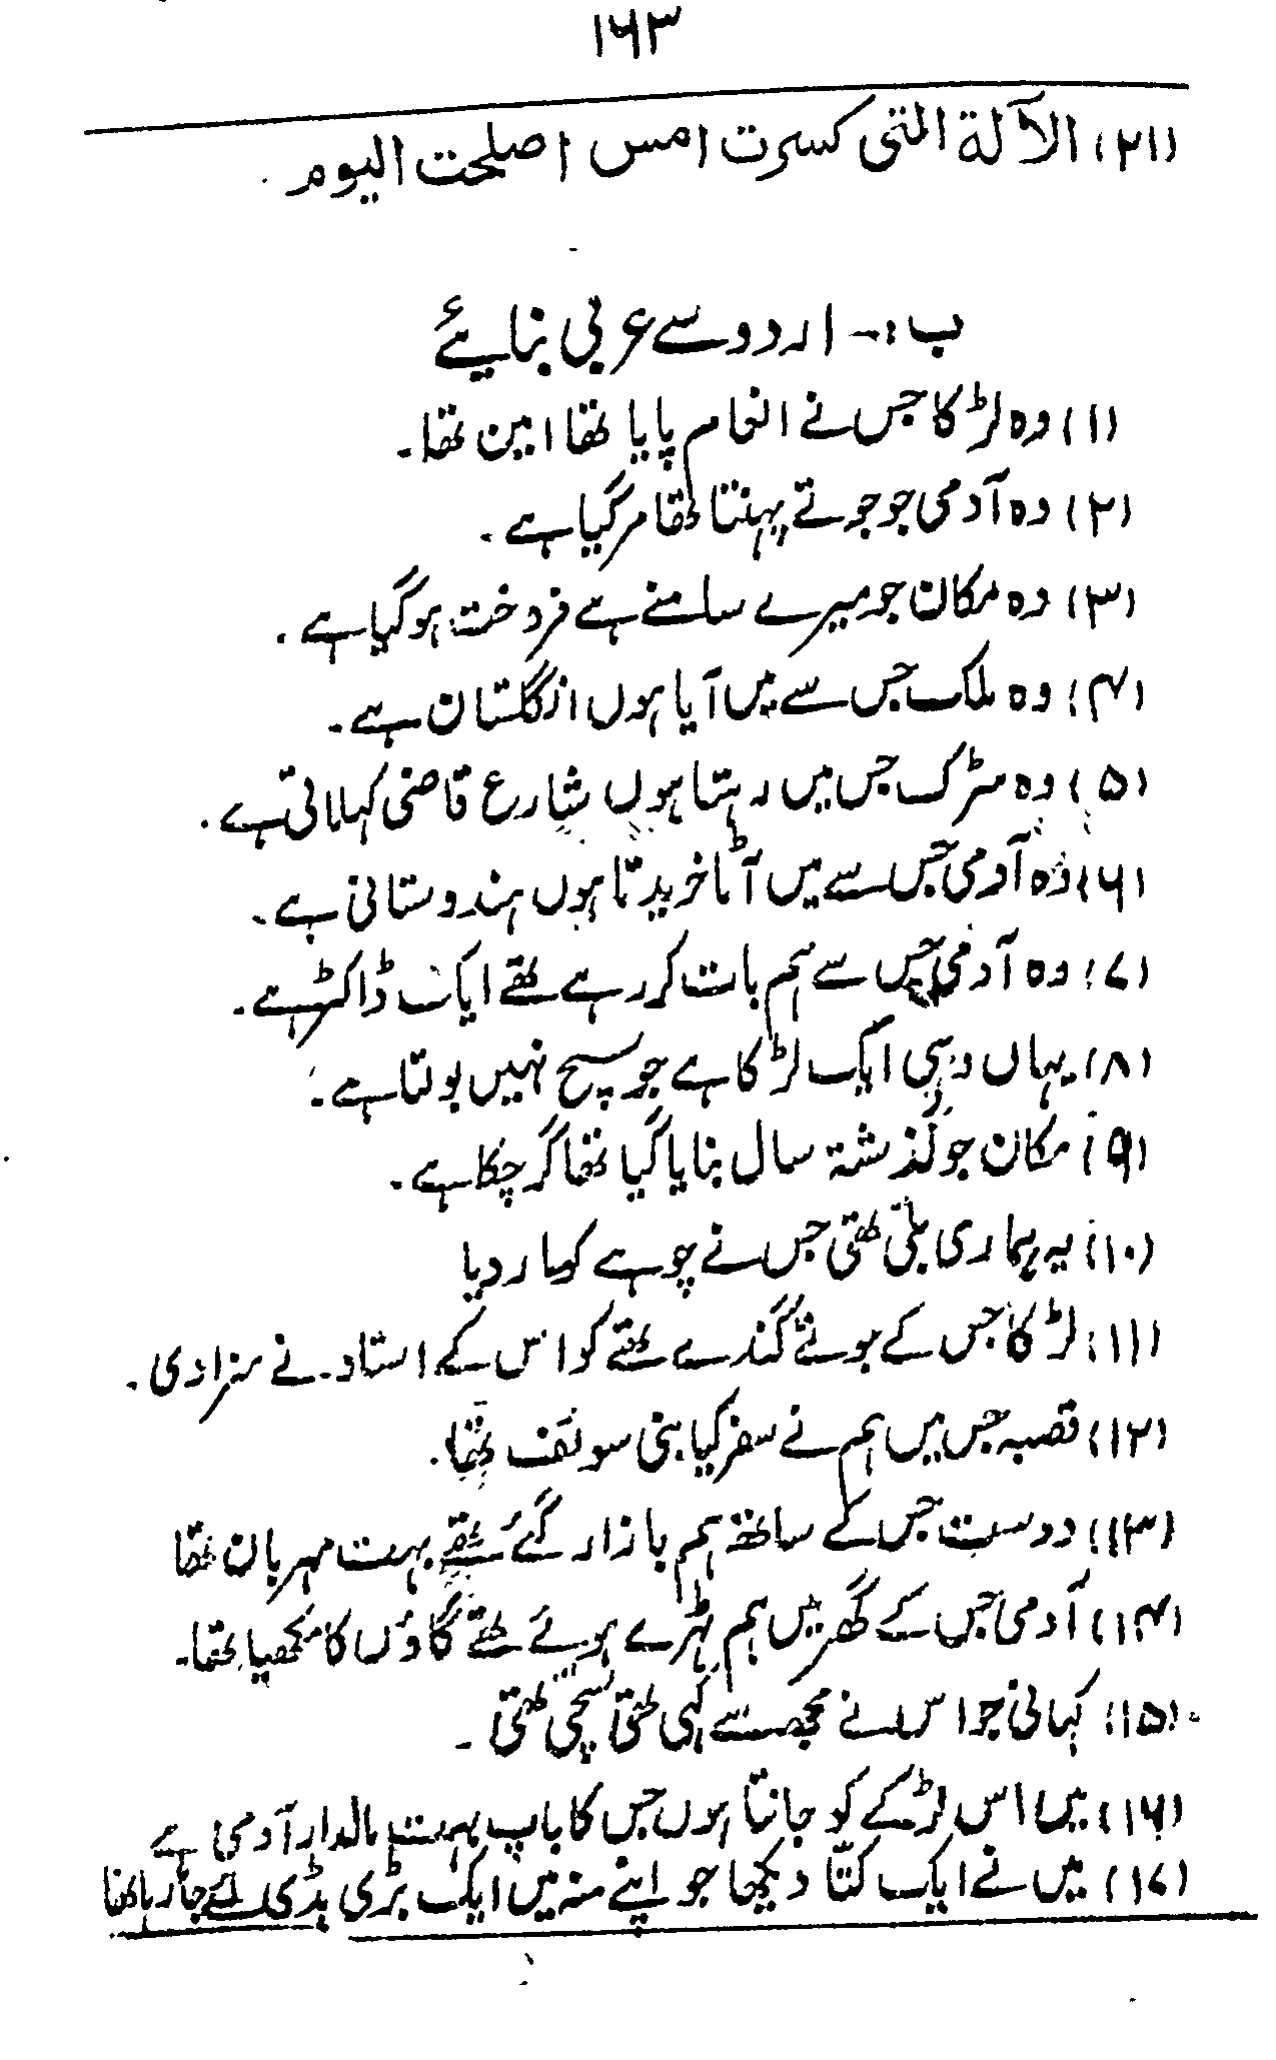 ۱۶۳
(۲۱) الآلة التی کسرت امس اصلحت الیوم.
ب:- اردو سے عربی بنائیے
(۱) وہ لڑکا جس نے انعام پایا تھا امین تھا۔
(۲) وہ آدمی جو جوتے پہنتا تھا مر گیا ہے۔
(۳) وہ مکان جو میرے سامنے ہے فروخت ہو گیا ہے۔
(۴) وہ ملک جس سے میں آیا ہوں انگلستان ہے۔
(۵) وہ سڑک جس میں رہتا ہوں شارع قاضی کہلاتی ہے۔
(۶) وہ آدمی جس سے میں آٹا خریدتا ہوں ہندوستانی ہے۔
(۷) وہ آدمی جس سے ہم بات کر رہے تھے ایک ڈاکٹر ہے۔
(۸) یہاں وہی ایک لڑکا ہے جو سچ نہیں بولتا ہے۔
(۹) مکان جو گذشتہ سال بنایا گیا تھا گر چکا ہے۔
(۱۰) یہ ہماری بلی تھی جس نے چوہے کو مار دیا
(۱۱) لڑکا جس کے جوتے گندے تھے کو اس کے استاد نے سزا دی۔
(۱۲) قصبہ جس میں ہم نے سفر کیا بنی سوئف تھا۔
(۱۳) دوست جس کے ساتھ ہم بازار گئے تھے بہت مہربان تھا
(۱۴) آدمی جس کے گھر میں ہم ٹہرے ہوئے تھے گاؤں کا مکھیا تھا۔
(۱۵) کہانی جو اس نے مجھ سے کہی تھی سچی تھی۔
(۱۶) میں اس لڑکے کو جانتا ہوں جس کا باپ بہت مالدار آدمی ہے
(۱۷) میں نے ایک کتّا دیکھا جو اپنے منہ میں ایک بڑی ہڈی لئے جا رہا تھا